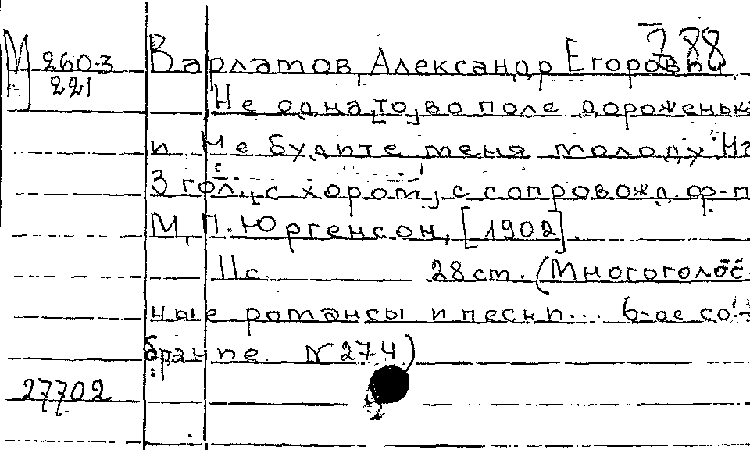 788
М 260-3 Варламов, Александр Егорович
221 Не одна, то, во поле дороженьк
и Не будите меня молоду. На
3 гол., с хором, с сопровожд. ф-п
М., П. Юргенсон, [1902].
11 с. 28 см. (Многоголос-
ные романсы и песни... 6-ое со-
брание. N 274)
27702